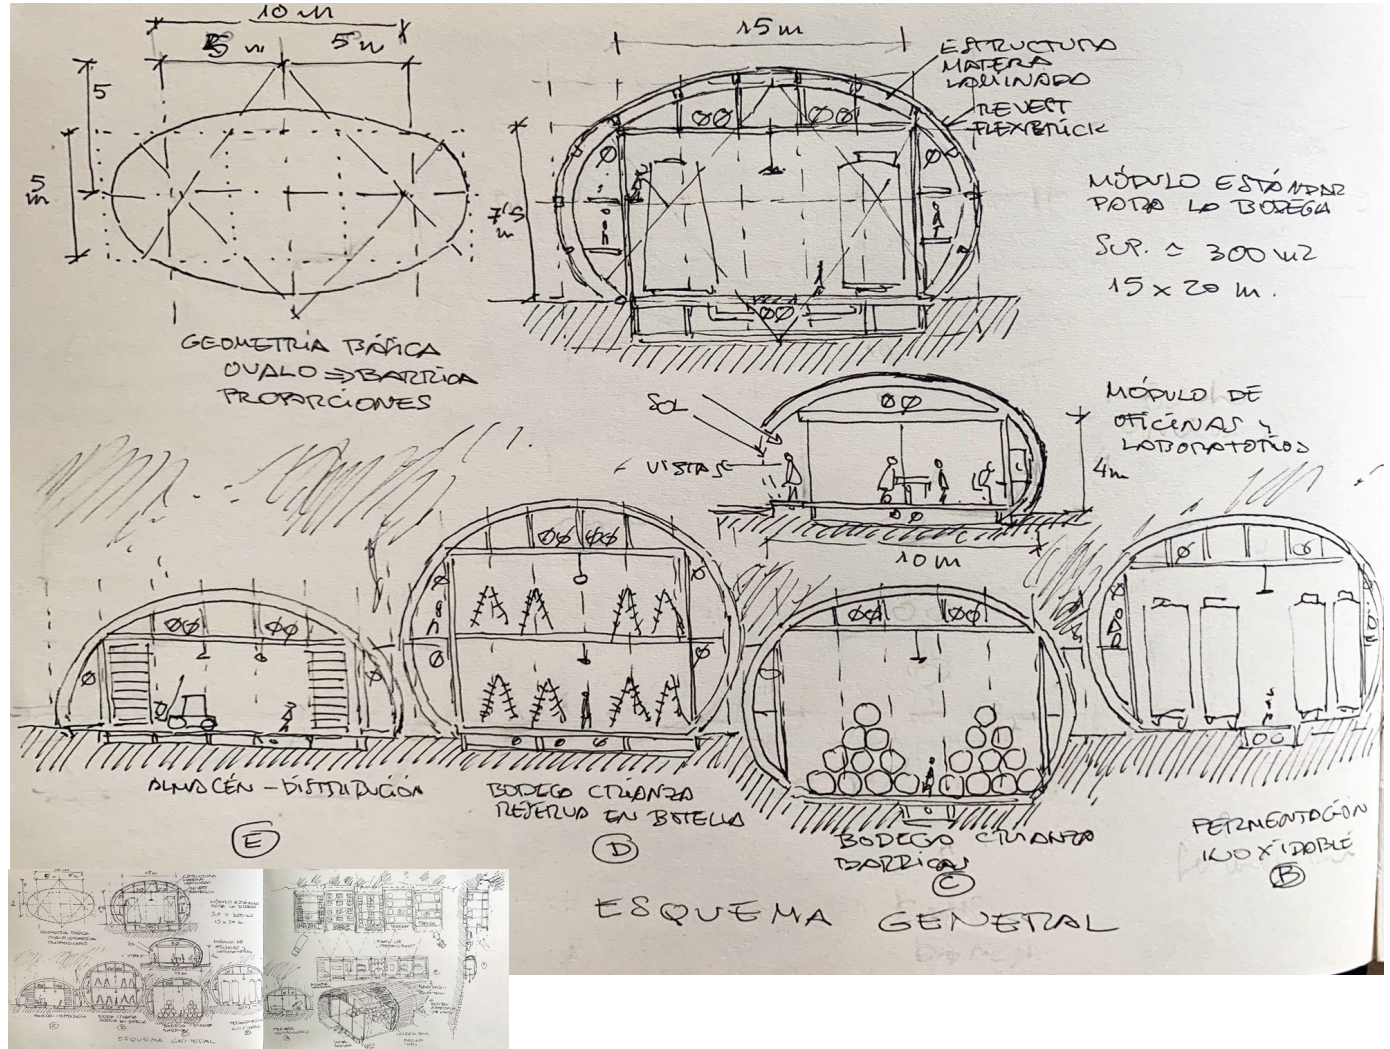 10 m
5 m 5 m
5
5 m
GEOMETRIA BÁSICA
OVALO ⇒ BARRICA
PROPORCIONES
15 m
ESTRUCTURA
MATERA
LAMINADO
REVEST
FLEXBRICK
7'5 m
MÓDULO ESTÁNDAR
PARA LA BODEGA
SUP. ≃ 300 m2
15 x 20 m.
SOL
VISTAS
MÓDULO DE
OFICINAS Y
LABORATORIOS
4m
10 m
ALMACÉN - DISTRIBUCIÓN
E
BODEGA CRIANZA
RESERVA EN BOTELLA
D
BODEGA CRIANZA
BARRICAS
C
FERMENTACIÓN
INOXIDABLE
B
ESQUEMA GENERAL